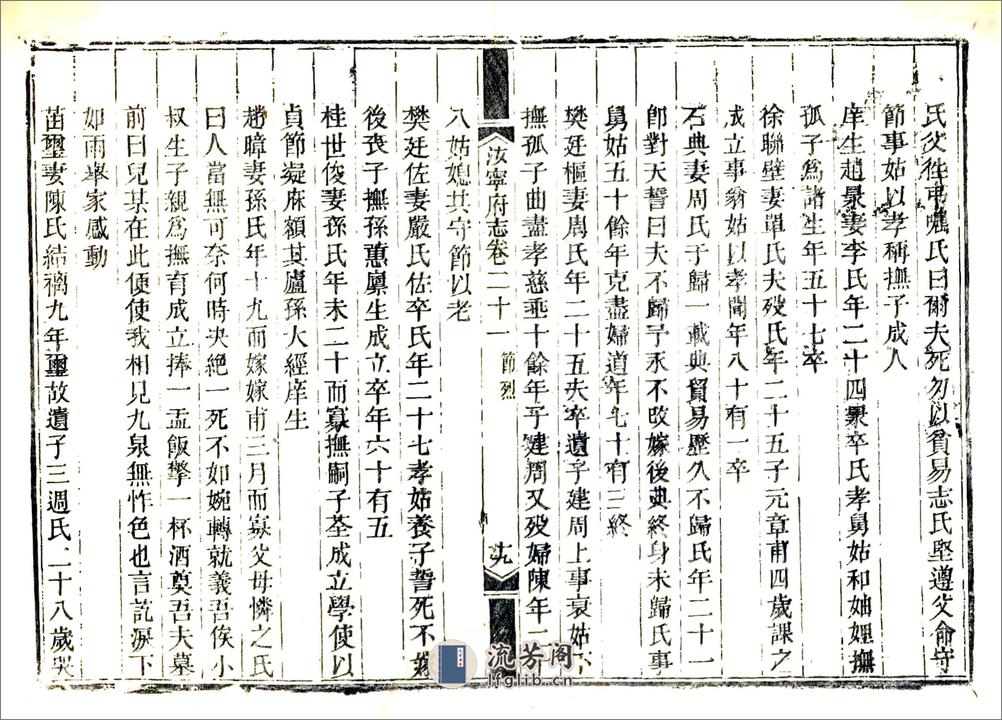 氏父往弔囑氏曰爾夫死勿以貧易志氏堅遵父命守
節事姑以孝稱撫子成人
庠生趙景妻李氏年二十四景卒氏孝舅姑和妯娌撫
孤子爲諸生年五十七卒
徐聯壁妻單氏夫歿氏年二十五子元章甫四歲課之
成立事翁姑以孝聞年八十有一卒
石典妻周氏于歸一載典貿易歷久不歸氏年二十一
卽對天誓曰夫不歸予永不改嫁後典終身未歸氏事
舅姑五十餘年克盡婦道年七十有三終
樊廷樞妻周氏年二十五夫卒遺子建周上事衰姑下
撫孤子曲盡孝慈乖十餘年子建周又歿婦陳年二
汝寧府志卷二十一
節烈
十九
八姑媳共守節以老
樊廷佐妻嚴氏佐卒氏年二十七孝姑養子誓死不
後喪子撫孫蕙廪生成立卒年六十有五
桂世俊妻孫氏年未二十而寡撫嗣子荃成立學使以
貞節凝麻額其廬孫大經庠生
趙暲妻孫氏年十九而嫁嫁甫三月而寡父母憐之氏
曰人當無可奈何時決絕一死不如婉轉就義吾俟小
叔生子親爲撫育成立捧一盂飯擎一杯酒奠吾夫墓
前曰兒某在此使使我相見九泉無怍色也言訖淚下
如雨舉家感動
苗璽妻陳氏結褵九年璽故遺子三週氏二十八歲哭
流芳阁
lfglib.cn